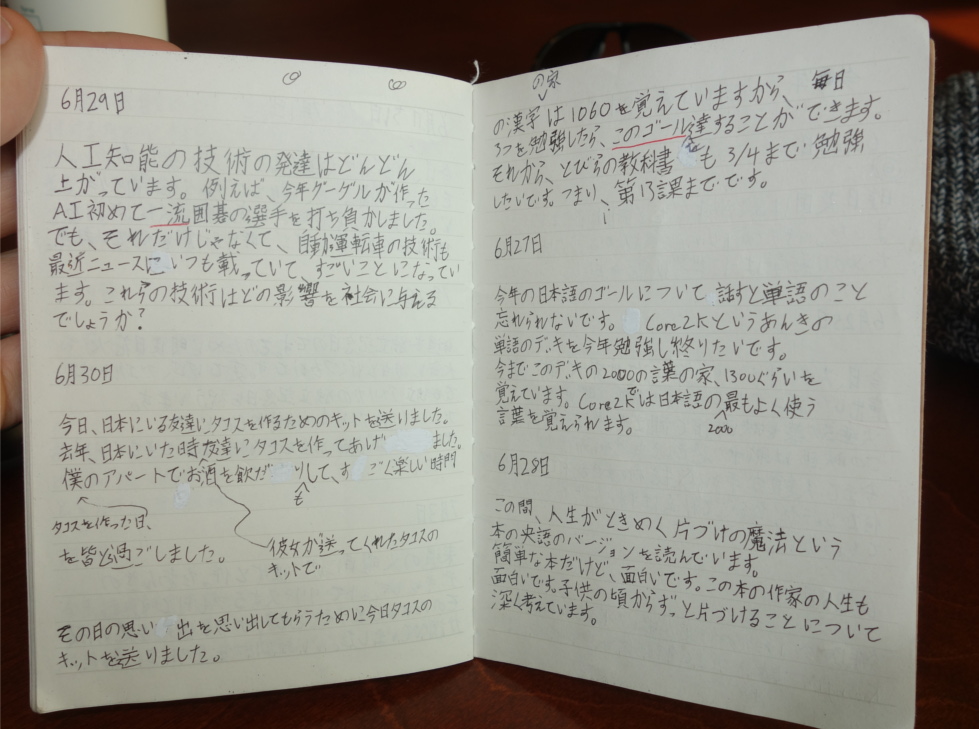 6月29日
人工知能の技術の発達はどんどん
上がっています。例えば、今年グーゲルが作った
AI初めて一流囲碁の選手を打ち負かしました。
でも、それだけじゃなくて、自動運転車の技術も
最近ニュースにいつも載っていて、すごいことになってい
ます。これらの技術はどの影響を社会に与える
でしょうか?
6月30日
今日、日本にいる友達にタコスを作るためのキットを送りました。
去年、日本にいた時友達にタコスを作ってあげました。
僕のアパートでお酒を飲だりして、すごく楽しい時間
も
タコスを作った日、
を皆と過ごしました。
彼女が送ってくれたタコスの
キットで
その日の思い出を思い出してもらうために今日タコスの
キットを送りました。
の家
毎日
の漢字は1060を覚えていますから、
3つを勉強したら、このゴール達することができます。
それから、とびらの教科書も3/4まで勉強
したいです。つまり、第13課までです。
6月27日
今年の日本語のゴールについて話すと単語のこと
忘れられないです。Core2Kというあんきの
単語のデッキを今年勉強し終りたいです。
今までこのデキの2000の言葉の家、1300ぐらいを
覚えています。Core2Kでは日本語の最もよく使う
2000
言葉を覚えられます。
6月28日
この間、人生がときめく片づけの魔法という
本の英語のバージョンを読んでいます。
簡単な本だけど、面白いです。この本の作家の人生も
面白いです。子供の頃からずっと片づけることについて
深く考えています。